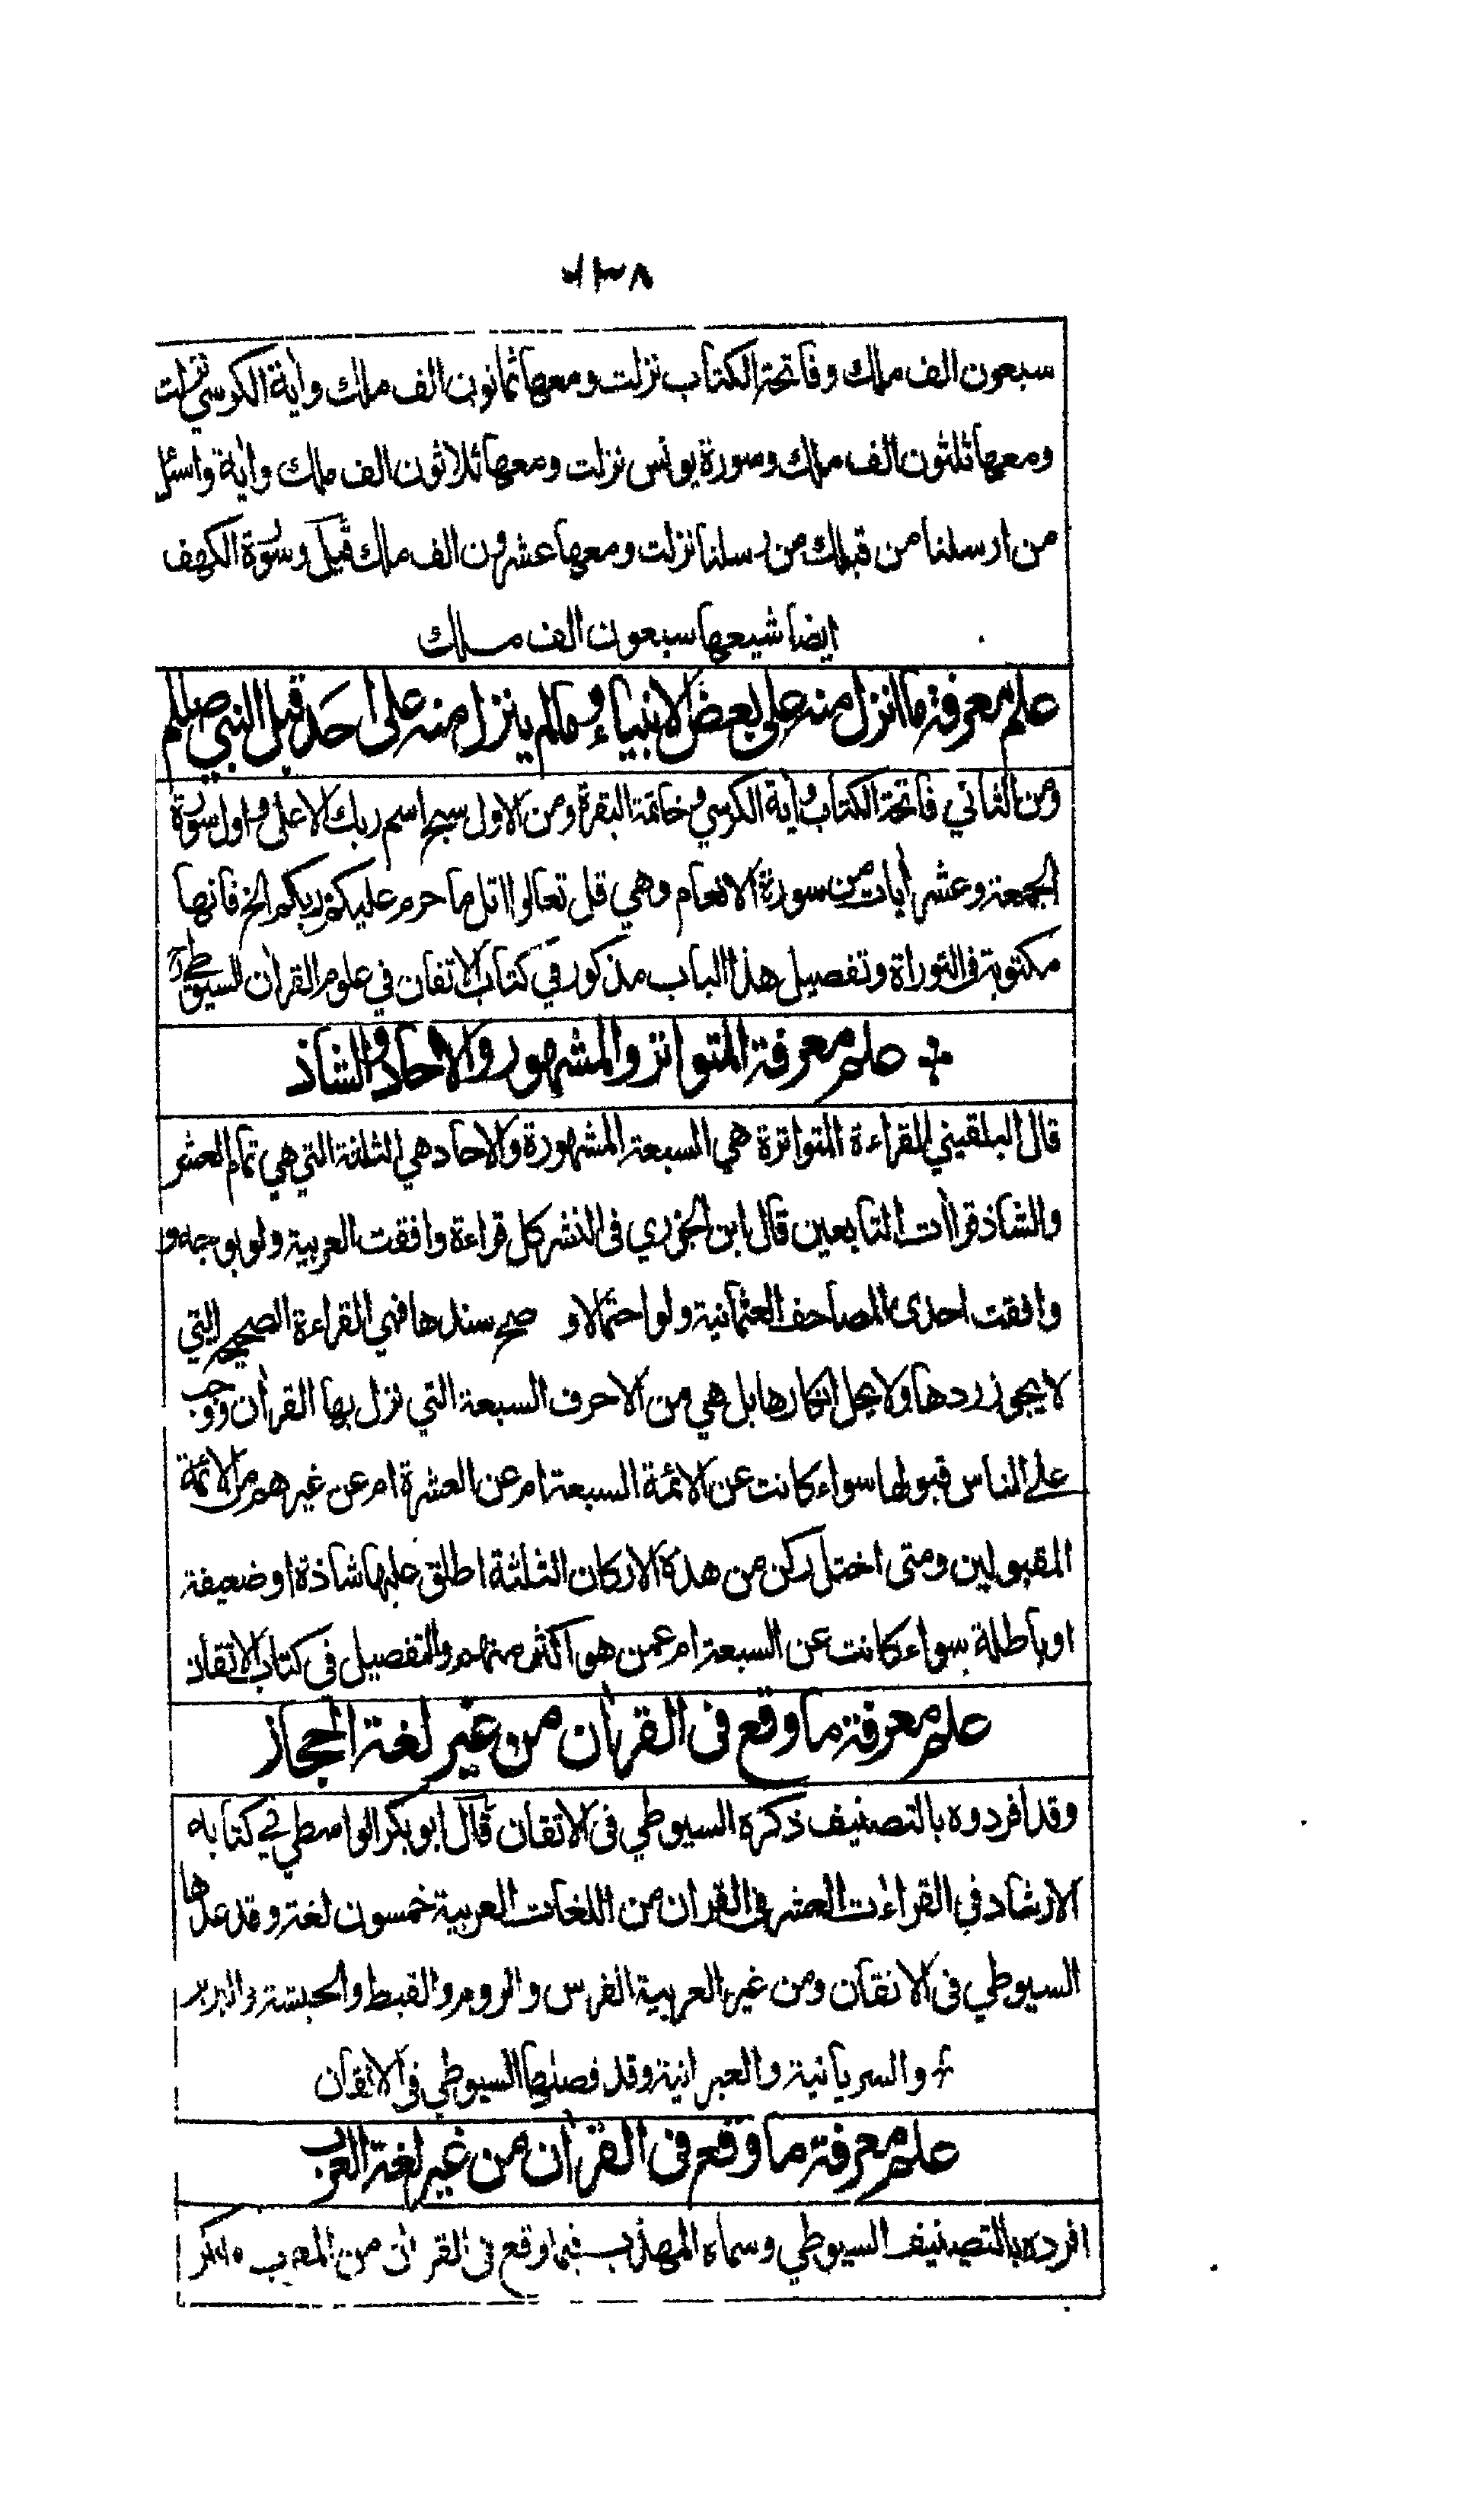 ٦٣٨
سبعون الف ملك وفاتحة الكتاب نزلت ومعها ثمانون الف ملك واية الكرسي نزلت
ومعها ثلثون الف ملك وسورة يونس نزلت ومعها ثلاثون الف ملك واية واسئل
من ارسلنا من قبلك من رسلنا نزلت ومعها عشرون الف ملك قيل وسورة الكهف
ايضا شيعها سبعون الف ملك
علم معرفة ما انزل منه على بعض الانبياء وما لم ينزل منه على احد قبل النبي صللم
ومن الثاني فاتحة الكتاب واية الكرسي وخاتمة البقرة ومن الاول سبح اسم ربك الاعلى واول سورة
الجمعة وعشر ايات من سورة الانعام وهي قل تعالوا اتل ما حرم عليكم ربكم الخ فانها
مكتوبة في التوراة وتفصيل هذا الباب مذكور في كتاب الاتقان في علوم القران للسيوطي رح
علم معرفة المتواتر والمشهور والاحاد والشاذ
قال البلقيني القراءة المتواترة هي السبعة المشهورة والاحاد هي الثلثة التي هي تمام العشر
والشاذ قراأت التابعين قال ابن الجزري في النشر كل قراءة وافقت العربية ولو بوجه و
وافقت احدى المصاحف العثمانية ولو احتمالا و صح سندها فهي القراءة الصحيحة التي
لا يجوز ردها ولا يحل انكارها بل هي من الاحرف السبعة التي نزل بها القرآن ووجب
على الناس قبولها سواء كانت عن الائمة السبعة ام عن العشرة ام عن غيرهم من الائمة
المقبولين ومتى اختل ركن من هذه الاركان الثلثة اطلق عليها شاذة او ضعيفة
او باطلة سواء كانت عن السبعة ام عمن هو اكثر منهم والتفصيل في كتاب الاتقان
علم معرفة ما وقع في القرآن من غير لغة الحجاز
وقد افردوه بالتصنيف ذكره السيوطي في الاتقان قال ابو بكر الواسطي في كتابه
الارشاد في القراءات العشر في القران من اللغات العربية خمسون لغة وقد عدها
السيوطي في الاتقان ومن غير العربية الفرس والروم والقبط والحبشة والبربر
والسريانية والعبرانية وقد فصلها السيوطي في الاتقان
علم معرفة ما وقع في القرآن من غير لغة العرب
افرده بالتصنيف السيوطي وسماه المهذب فيما وقع في القرآن من المعرب